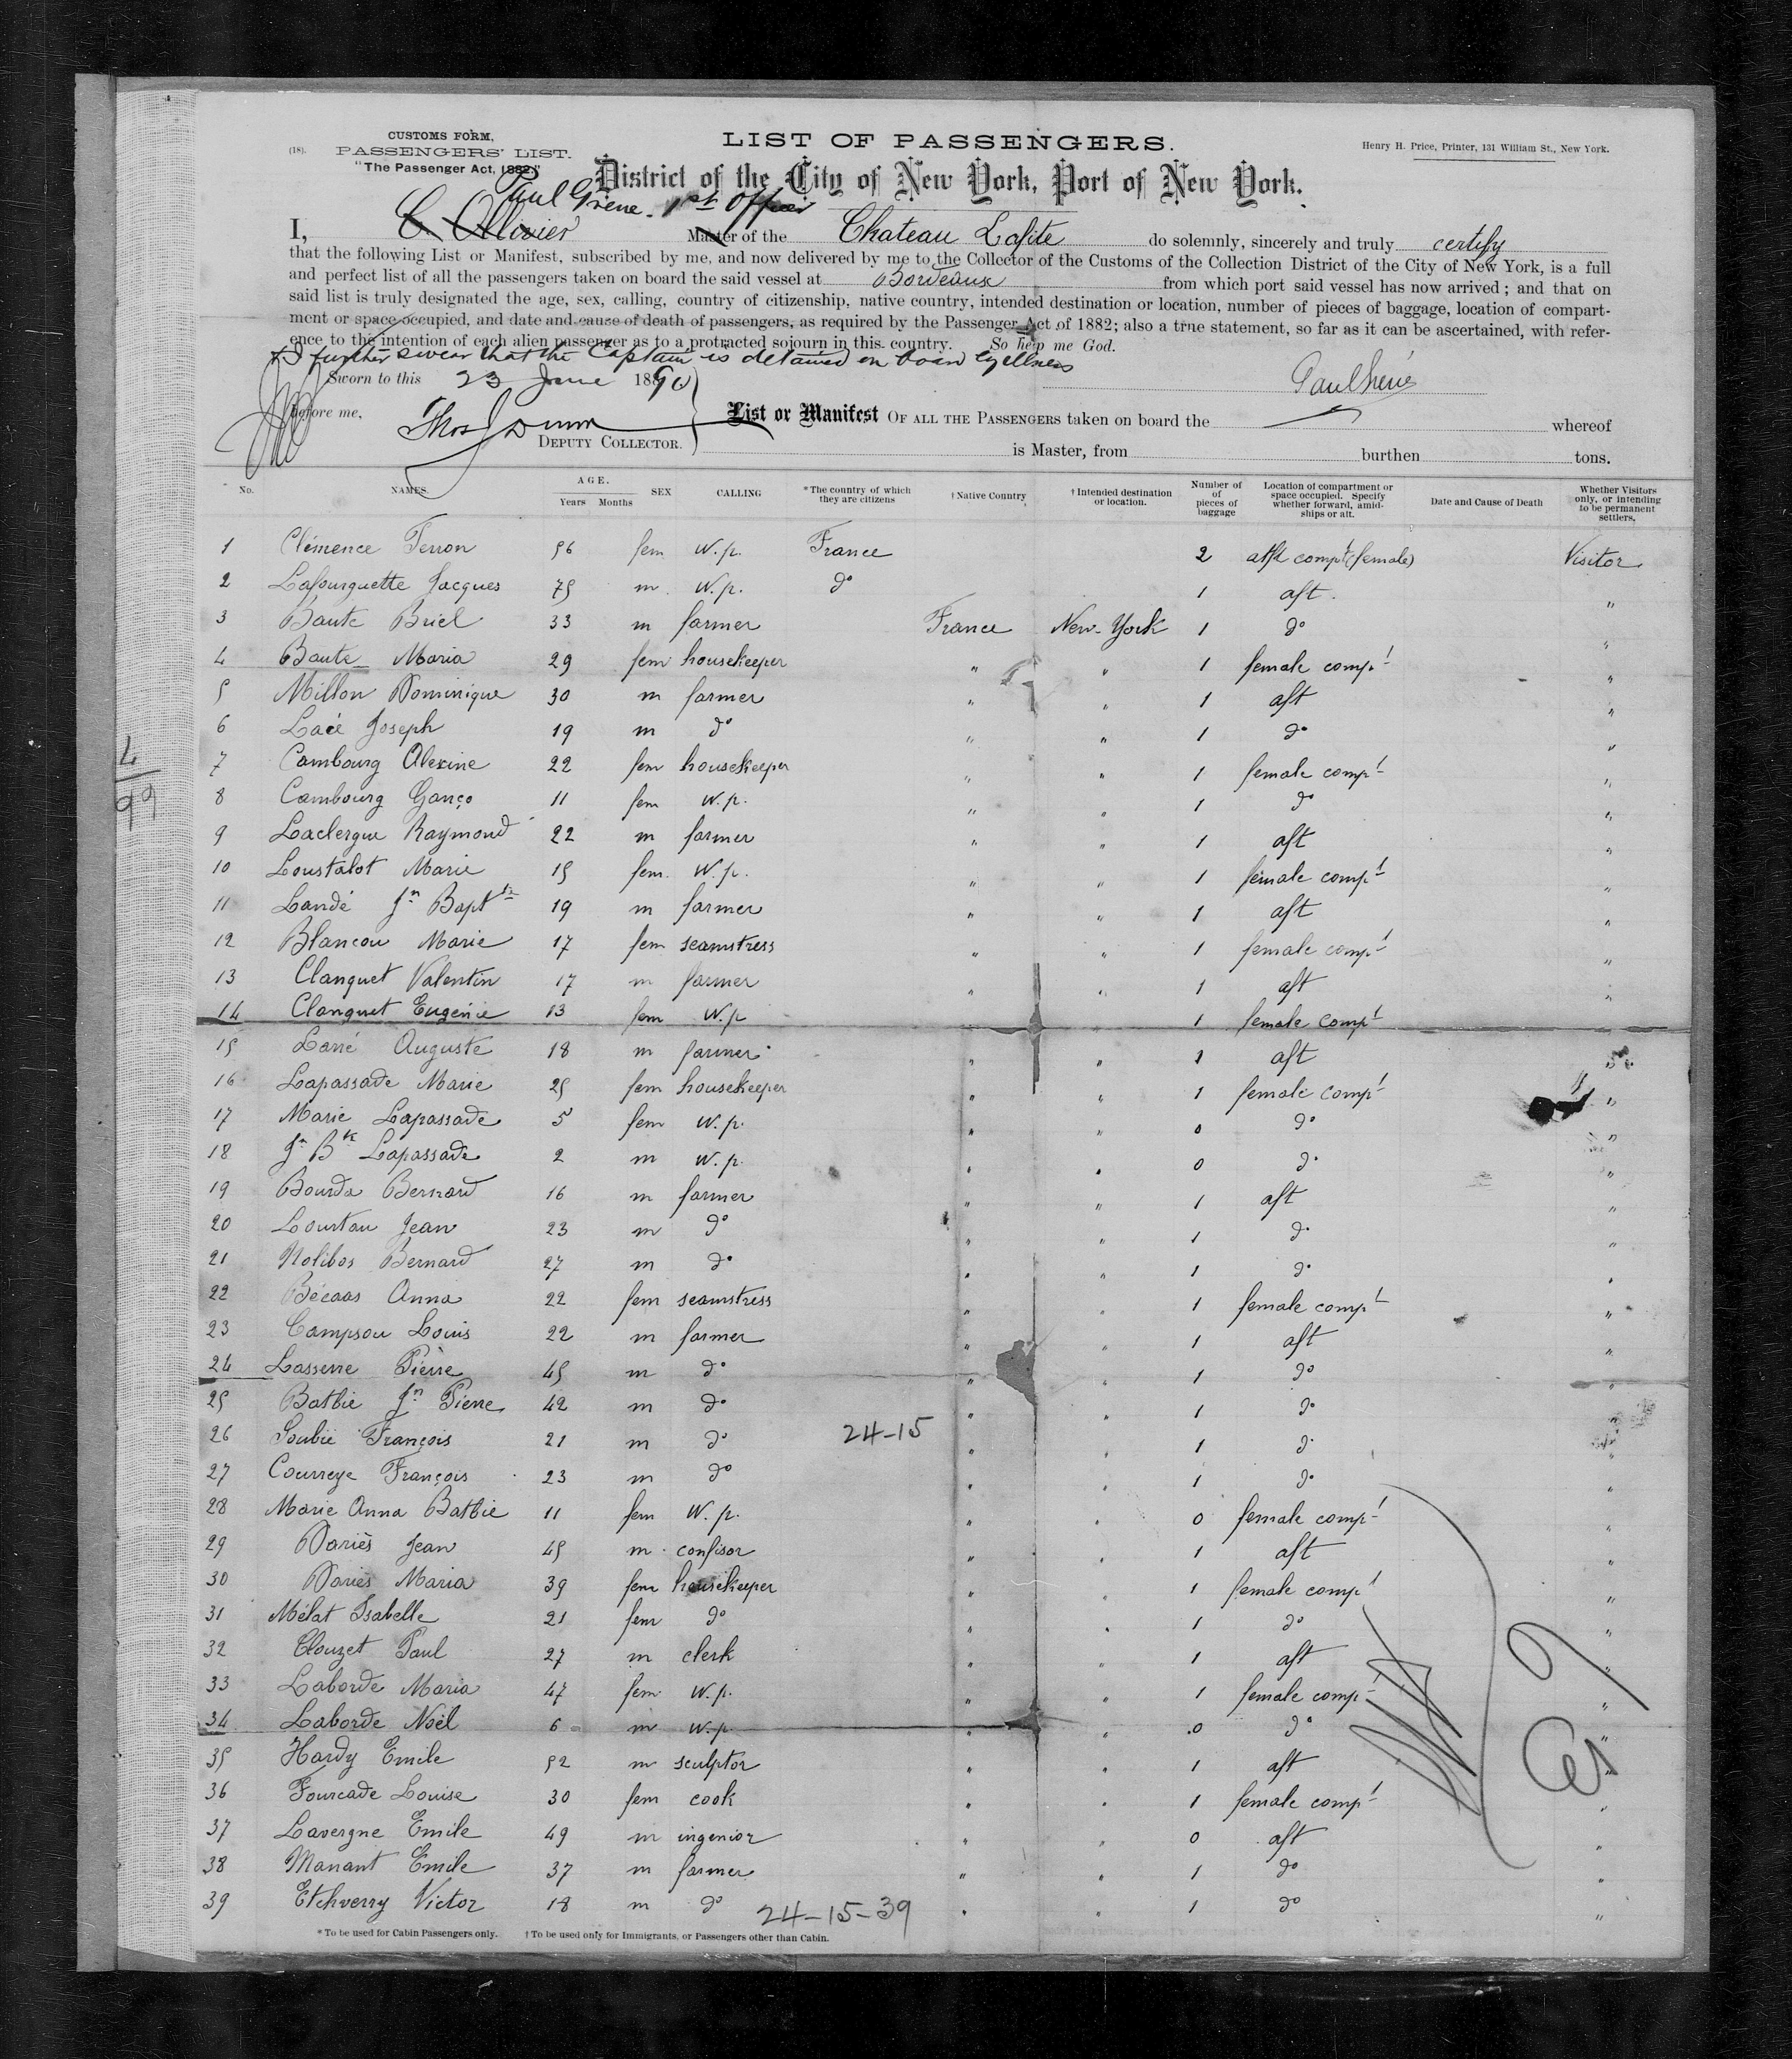 CUSTOMS FORM,
(18). PASSENGERS' LIST.
"The Passenger Act, 1882."
LIST OF PASSENGERS.
Henry H. Price, Printer, 131 William St., New York.
District of the City of New York, Port of New York.
Paul 1st Officer
I, C. Ollivier Master of the Chateau Lafite do solemnly, sincerely and truly certify
that the following List or Manifest, subscribed by me, and now delivered by me to the Collector of the Customs of the Collection District of the City of New York, is a full
and perfect list of all the passengers taken on board the said vessel at Bordeaux from which port said vessel has now arrived; and that on
said list is truly designated the age, sex, calling, country of citizenship, native country, intended destination or location, number of pieces of baggage, location of compart-
ment or space occupied, and date and cause of death of passengers, as required by the Passenger Act of 1882; also a true statement, so far as it can be ascertained, with refer-
ence to the intention of each alien passenger as to a protracted sojourn in this country. So help me God.
I further swear that the Captain is detained on board by illness
Sworn to this 23 June 1890
Before me, Thos Dunn
DEPUTY COLLECTOR.
List or Manifest OF ALL THE PASSENGERS taken on board the whereof
is Master, from burthen tons.
No. NAMES. AGE. Years Months SEX CALLING *The country of which they are citizens †Native Country †Intended destination or location. Number of of pieces of baggage Location of compartment or space occupied. Specify whether forward, amid-ships or aft. Date and Cause of Death Whether Visitors only, or intending to be permanent settlers,
1 Clémence Terron 56 fem W.p. France 2 aft compt (female) Visitor
2 Lafourguette Jacques 75 m W.p. do 1 aft. "
3 Baute Briel 33 m farmer France New-York 1 do "
4 Baute Maria 29 fem housekeeper " " 1 female compt "
5 Millon Dominique 30 m farmer " " 1 aft "
6 Lacé Joseph 19 m do " " 1 do "
7 Cambourg Alexine 22 fem housekeeper " " 1 female compt "
8 Cambourg Ganço 11 fem W.p. " " 1 do "
9 Laclergue Raymond 22 m farmer " " 1 aft "
10 Loustalot Marie 15 fem W.p. " " 1 female compt "
11 Landé Jn Bapte 19 m farmer " " 1 aft "
12 Blancou Marie 17 fem seamstress " " 1 female compt "
13 Clanquet Valentin 17 m farmer " " 1 aft "
14 Clanquet Eugénie 13 fem W.p 1 female compt
15 Larré Auguste 18 m farmer " " 1 aft "
16 Lapassade Marie 25 fem housekeeper " " 1 female compt "
17 Marie Lapassade 5 fem W.p. " " 0 do "
18 Jn Bte Lapassade 2 m W.p. " " 0 do "
19 Bourda Bernard 16 m farmer " " 1 aft "
20 Lourtau Jean 23 m do " " 1 do "
21 Nolibos Bernard 27 m do " " 1 do "
22 Bécaas Anna 22 fem seamstress " " 1 female compt "
23 Campsou Louis 22 m farmer " " 1 aft "
24 Lasserre Pierre 45 m do " " 1 do "
25 Batbie Jn Pierre 42 m do " " 1 do "
26 Soubie François 21 m do 24-15 " " 1 do "
27 Courreye François 23 m do " " 1 do "
28 Marie Anna Batbie 11 fem W.p. " " 0 female compt "
29 Dariès Jean 45 m confisor " " 1 aft "
30 Dariès Maria 39 fem housekeeper " " 1 female compt "
31 Mélat Isabelle 21 fem do " " 1 do "
32 Clouzet Paul 27 m clerk " " 1 aft "
33 Laborde Maria 47 fem W.p. " " 1 female compt "
34 Laborde Noël 6 m W.p. " " 0 do "
35 Hardy Emile 52 m sculptor " " 1 aft "
36 Fourcade Louise 30 fem cook " " 1 female compt "
37 Lavergne Emile 49 m ingenior " " 0 aft "
38 Manant Emile 37 m farmer " " 1 do "
39 Etchverry Victor 18 m do " " 1 do "
24-15-39
*To be used for Cabin Passengers only. †To be used only for Immigrants, or Passengers other than Cabin.
L
99